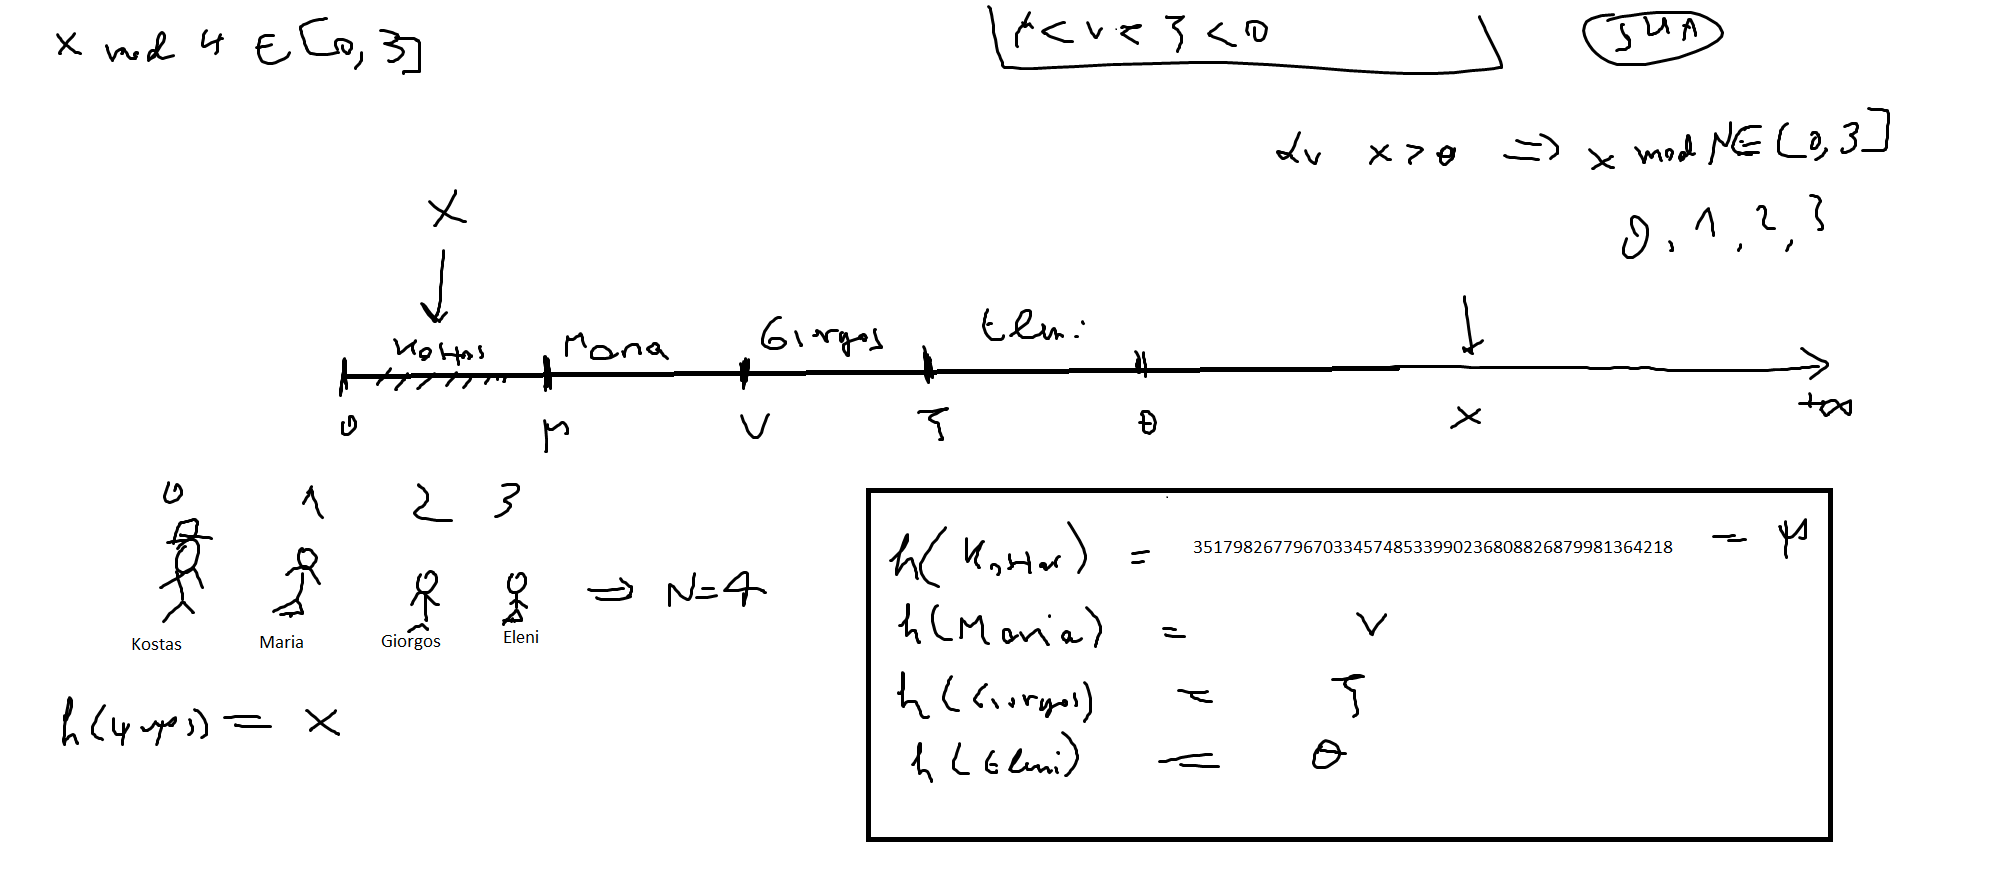 x mod 4 ∈ [0, 3]
μ < ν < ζ < θ
SHA
αν x > θ ⇒ x mod N ∈ [0, 3]
0, 1, 2, 3
X
Kostas Maria Giorgos Eleni
0 μ ν ζ θ x +∞
0 1 2 3
⇒ N=4
Kostas Maria Giorgos Eleni
h( ) = x
h(Kostas) = 351798267796703345748533990236808826879981364218 = μ
h(Maria) = ν
h(Giorgos) = ζ
h(Eleni) = θ